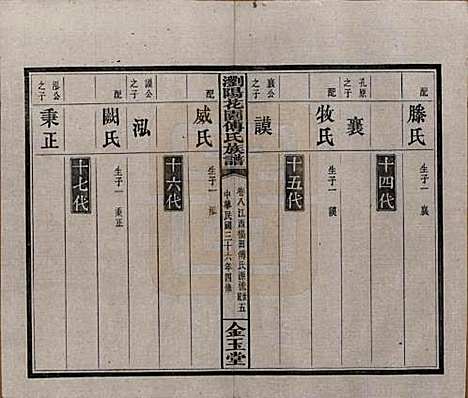 配 滕氏 生子一 襄
十四代
孔原之子 襄
配 牧氏 生子一 謨
十五代
襄公之子 謨
瀏陽花園傅氏族譜
卷八 江西 傅氏源流 五
中華民國二十六年四修
金玉堂
配 威氏 生子一 泓
十六代
謨公之子 泓
配 闕氏 生子一 秉正
十七代
泓公之子 秉正